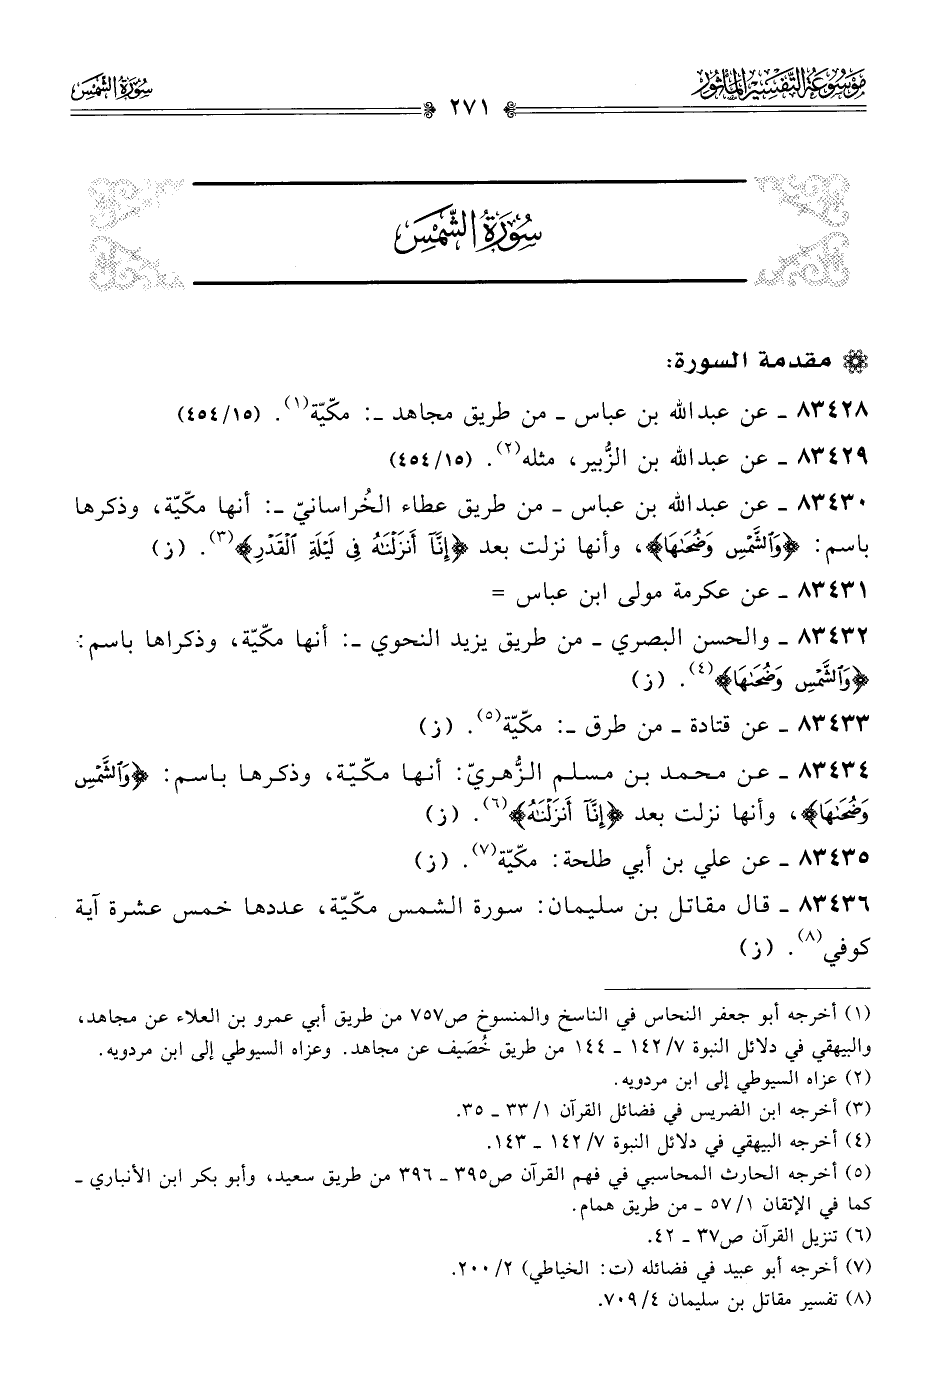 موسوعة التفسير المأثور
٢٧١
سورة الشمس
سُورَةُ الشَّمْسِ
مقدمة السورة:
٨٣٤٢٨ ـ عن عبدالله بن عباس ـ من طريق مجاهد ـ: مكّيّة(١). (٤٥٤/١٥)
٨٣٤٢٩ ـ عن عبدالله بن الزُّبير، مثله(٢). (٤٥٤/١٥)
٨٣٤٣٠ ـ عن عبدالله بن عباس ـ من طريق عطاء الخُراسانيّ ـ: أنها مكيّة، وذكرها
باسم: ﴿وَٱلشَّمْسِ وَضُحَىٰهَا﴾، وأنها نزلت بعد ﴿إِنَّآ أَنزَلْنَٰهُ فِى لَيْلَةِ ٱلْقَدْرِ﴾(٣). (ز)
٨٣٤٣١ ـ عن عكرمة مولى ابن عباس =
٨٣٤٣٢ ـ والحسن البصري ـ من طريق يزيد النحوي ـ: أنها مكّيّة، وذكراها باسم:
﴿وَٱلشَّمْسِ وَضُحَىٰهَا﴾(٤). (ز)
٨٣٤٣٣ ـ عن قتادة ـ من طرق ـ: مكّيّة(٥). (ز)
٨٣٤٣٤ ـ عن محمد بن مسلم الزُّهريّ: أنها مكّيّة، وذكرها باسم: ﴿وَٱلشَّمْسِ
وَضُحَىٰهَا﴾، وأنها نزلت بعد ﴿إِنَّآ أَنزَلْنَٰهُ﴾(٦). (ز)
٨٣٤٣٥ ـ عن علي بن أبي طلحة: مكّيّة(٧). (ز)
٨٣٤٣٦ ـ قال مقاتل بن سليمان: سورة الشمس مكّيّة، عددها خمس عشرة آية
كوفي(٨). (ز)
(١) أخرجه أبو جعفر النحاس في الناسخ والمنسوخ ص٧٥٧ من طريق أبي عمرو بن العلاء عن مجاهد،
والبيهقي في دلائل النبوة ١٤٢/٧ ـ ١٤٤ من طريق خُصَيف عن مجاهد. وعزاه السيوطي إلى ابن مردويه.
(٢) عزاه السيوطي إلى ابن مردويه.
(٣) أخرجه ابن الضريس في فضائل القرآن ٣٣/١ ـ ٣٥.
(٤) أخرجه البيهقي في دلائل النبوة ١٤٢/٧ ـ ١٤٣.
(٥) أخرجه الحارث المحاسبي في فهم القرآن ص٣٩٥ ـ ٣٩٦ من طريق سعيد، وأبو بكر ابن الأنباري ـ
كما في الإتقان ٥٧/١ ـ من طريق همام.
(٦) تنزيل القرآن ص٣٧ ـ ٤٢.
(٧) أخرجه أبو عبيد في فضائله (ت: الخياطي) ٢٠٠/٢.
(٨) تفسير مقاتل بن سليمان ٧٠٩/٤.